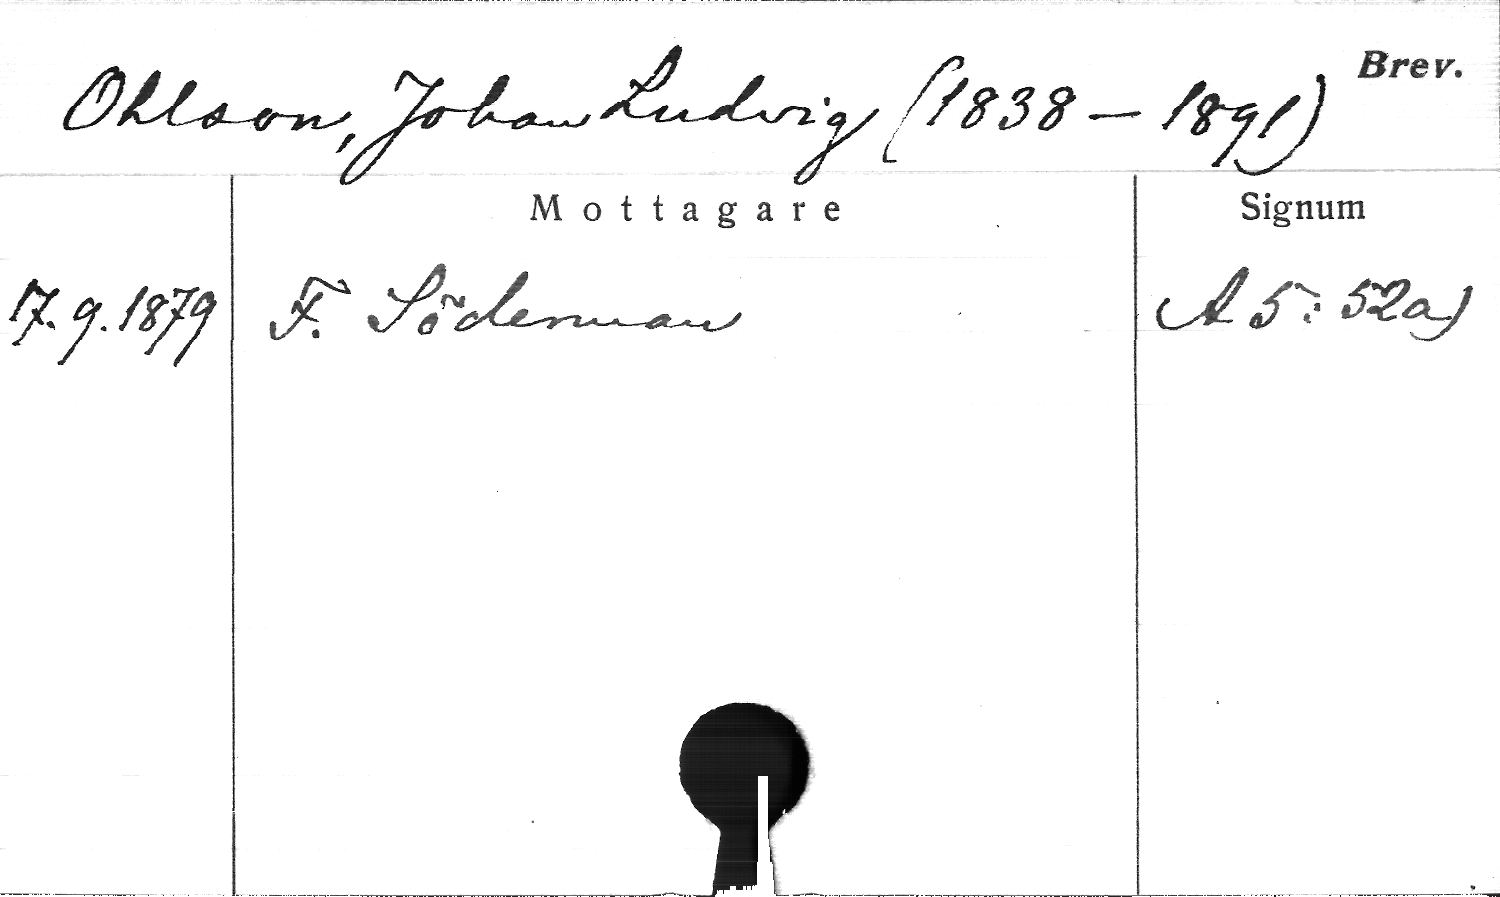 Brev.
Ohlson, Johan Ludvig (1838 – 1891)
Mottagare Signum
17. 9. 1879 F. Söderman A 5: 52a)